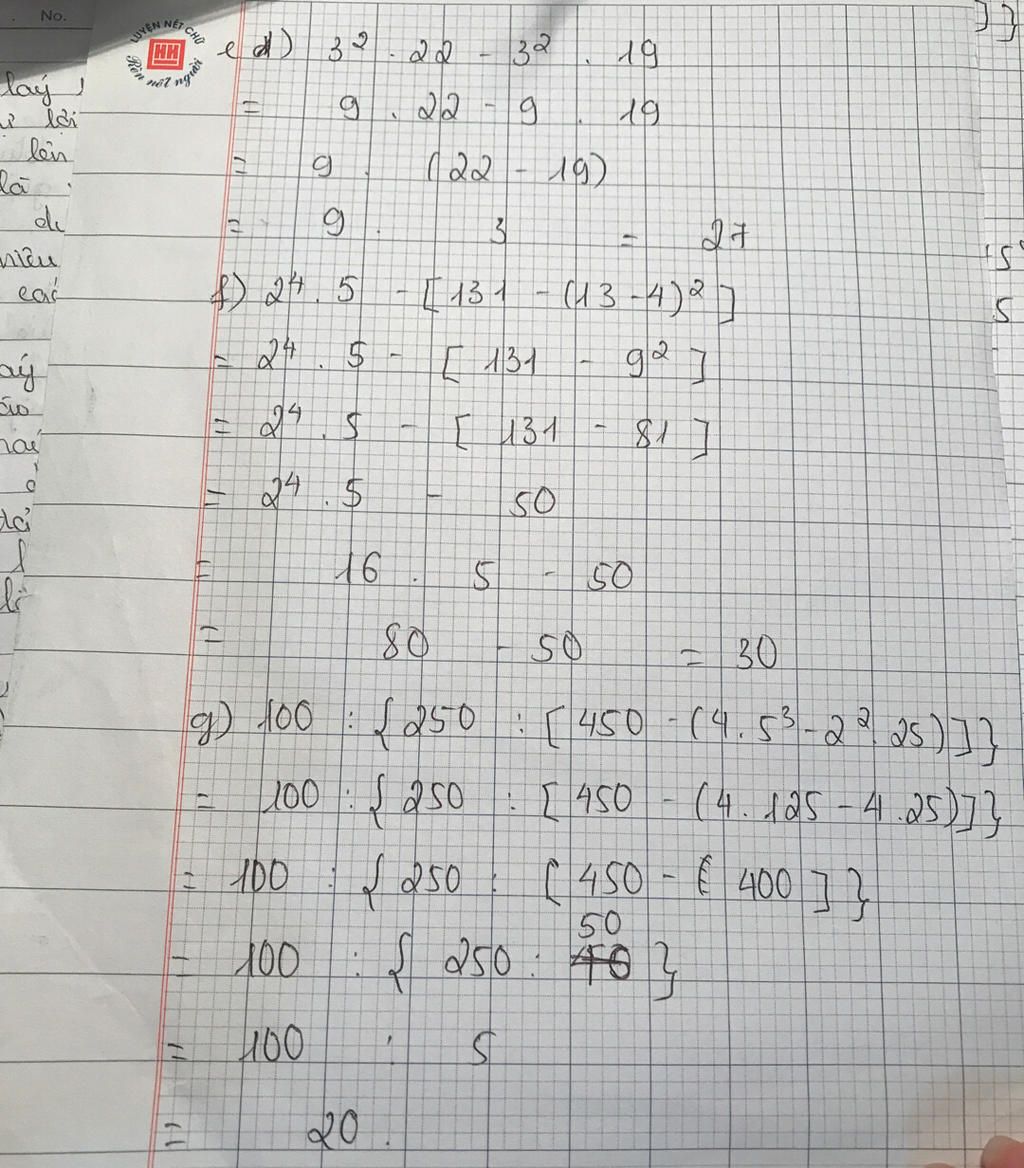 No.
LUYỆN NÉT CHỮ
HH
Rèn nết người
laý
lời
lên
là
niêu
các
e d) 3² . 22 - 3² . 19
= 9 . 22 - 9 . 19
= 9 . (22 - 19)
= 9 . 3 = 27
f) 2⁴ . 5 - [131 - (13 - 4)²]
= 2⁴ . 5 - [131 - 9²]
= 2⁴ . 5 - [131 - 81]
= 2⁴ . 5 - 50
= 16 . 5 - 50
= 80 - 50 = 30
g) 100 : {250 : [450 - (4 . 5³ - 2² . 25)]}
= 100 : {250 : [450 - (4 . 125 - 4 . 25)]}
= 100 : {250 : [450 - ( 400 ]}
50
= 100 : {250 : }
= 100 : 5
= 20.